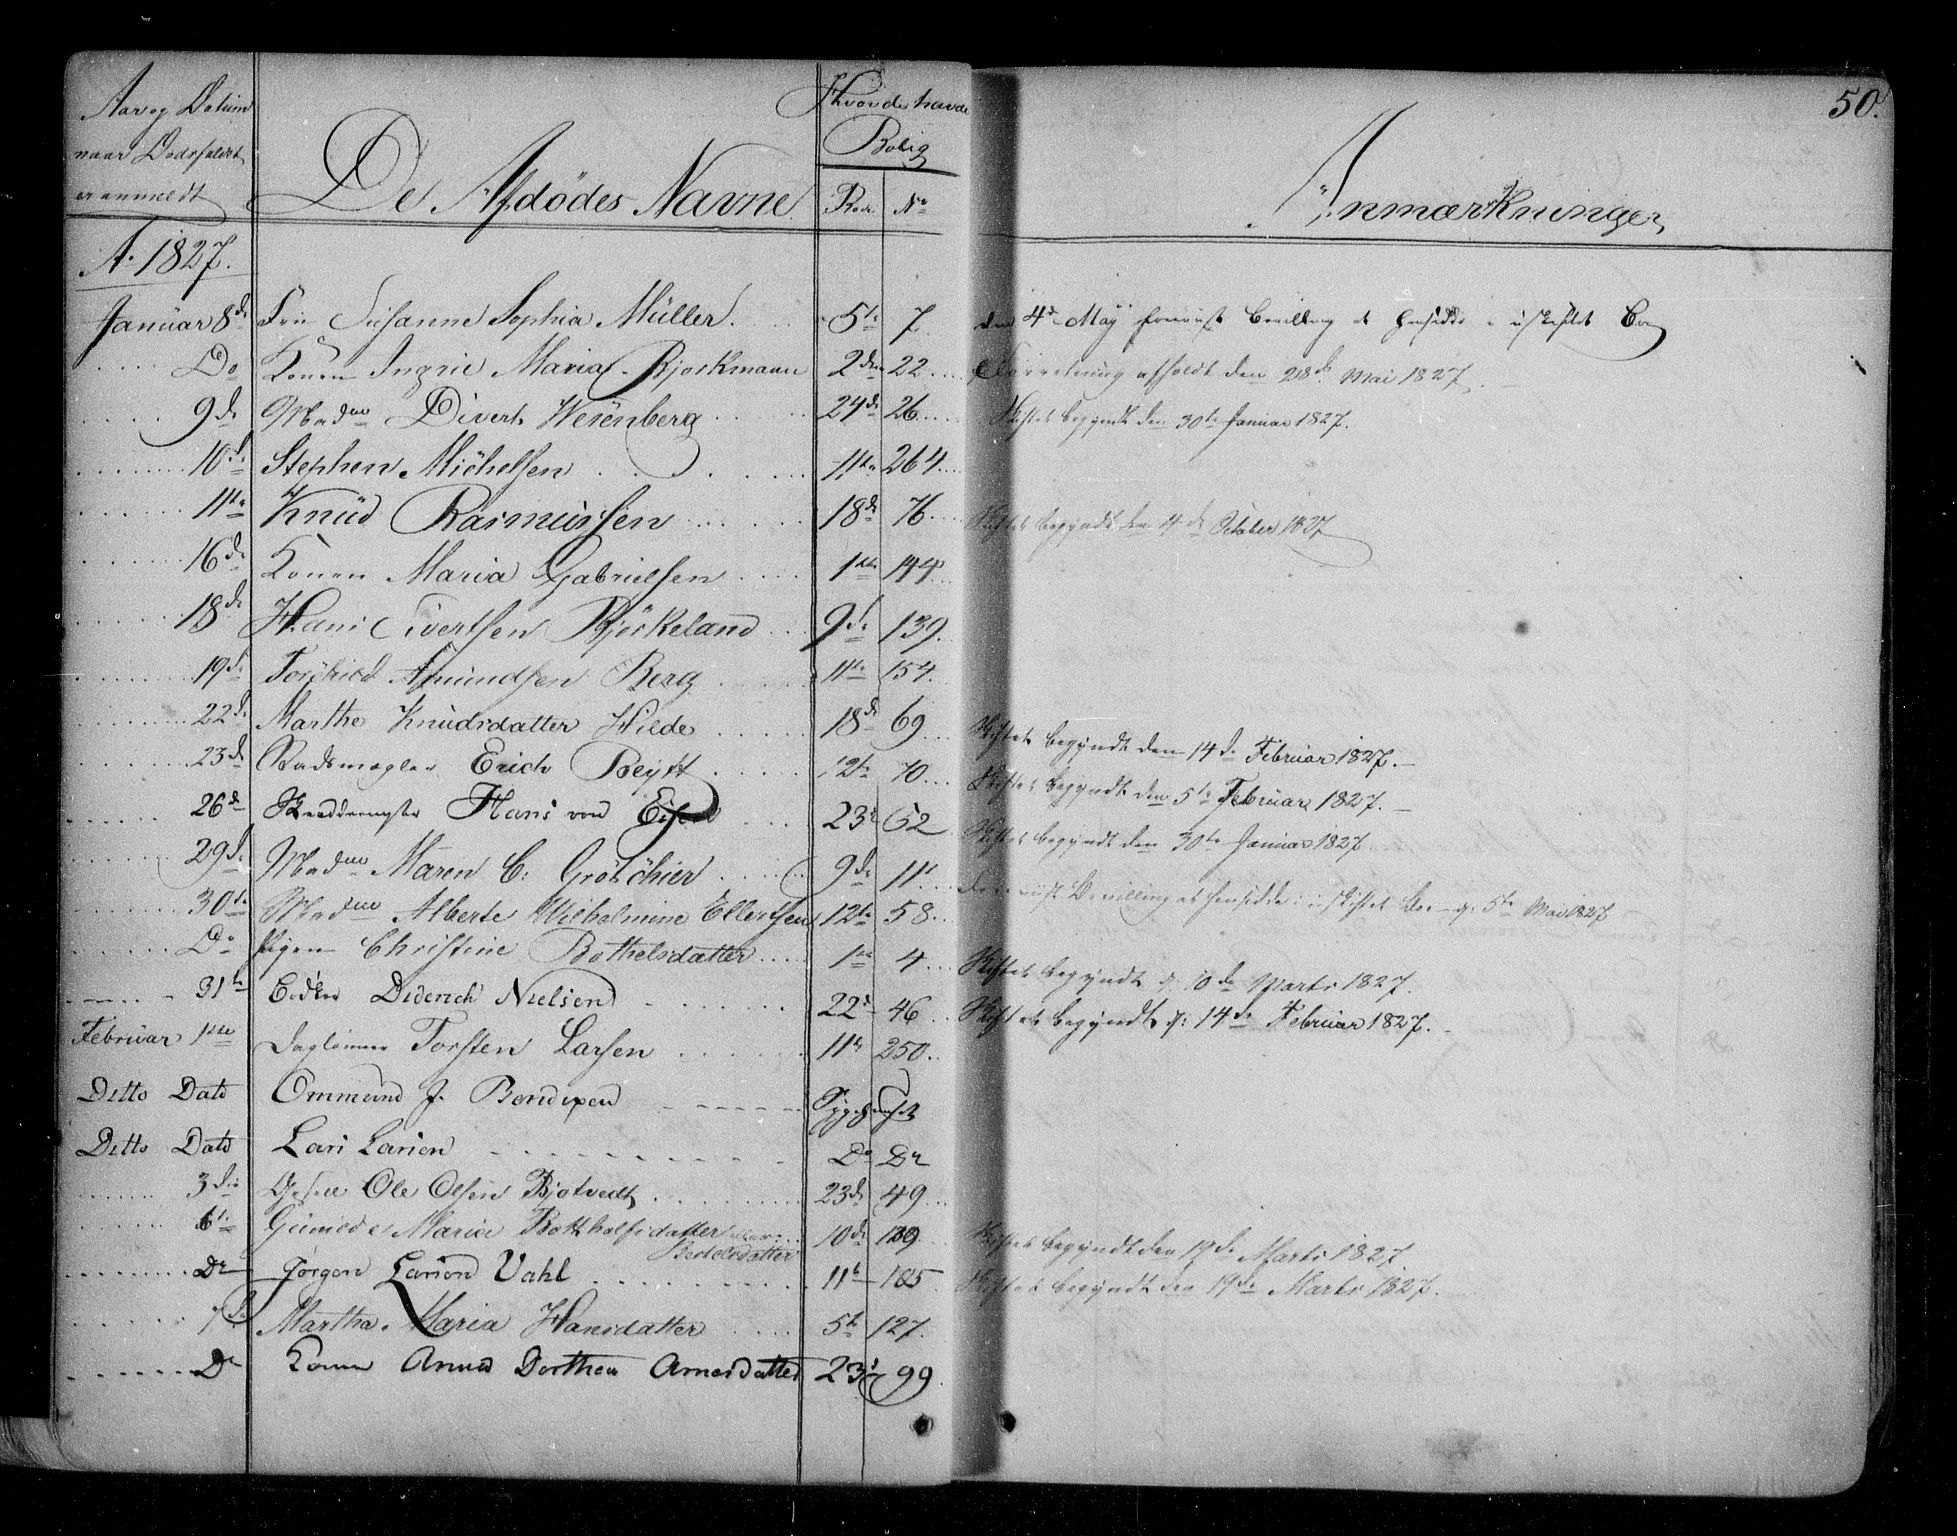 50.
Aar og Datum
naar Dødsfaldet
er anmeldt
De Afdödes Navne
Hvor de havde
Bolig
Rode No
Anmærkninger
Ao 1827.
Januar 8de Fru Susanne Sophia Müller. 5te 7 den 4de May Bevilling at hensidde i uskiftet Boe
Do Konen Ingrie Maria Bjorkmann 2den 22 Forretning afholdt den 28de Mai 1827.
9de Madme Divert Wesenberg 24de 26 Skiftet begyndt den 30te Januar 1827.
10de Stephen Michelsen 11te 264
11te Knud Rasmussen 18de 76 Skiftet begyndt den 4de October 1837
16de Konen Maria Gabrielsen 1ste 144
18de Hans Sivertsen Björkeland 9de 139.
19de Amundsen Berg 11te 154
22de Marthe Knudsdatter Hilde 18de 69 Skiftet begyndt den 14de Februar 1827.
23de Erich Beyer 12te 70 Skiftet begyndt den 5te Februar 1827.
26de Hans von 23de 62 Skiftet begyndt den 30te Januar 1827
29de Madme Maren C: Grötchier 9de 11 Bevilling at hensidde i uskiftet Boe 5te Mai 1827
30te Madme Alberte Wilhelmine Ellertsen 12te 58
Do Pigen Christine Bothelsdatter 1ste 4 Skiftet begyndt d: 10de Marts 1827.
31te Diderich Nielsen 22de 46 Skiftet begyndt d: 14de Februar 1827.
Februar 1ste Torsten Larsen 11te 250
Ditto Dato Ommund J. Bendixen Sygehuuset
Ditto Dato Lars Larsen Do Do
3die Ole Olsen Bjotvedt 23de 49
6te Gunilde Marie Bottholfsdatter 10de 139 Skiftet begyndt den 19de Marts 1827.
Bertelsdatter
Do Jørgen Larsen Vahl 11te 185 Skiftet begyndt den 19de Marts 1827.
7de Martha Maria Hansdatter 5te 127.
Do Konen Anna Dorthea Arnesdatter 23de 99